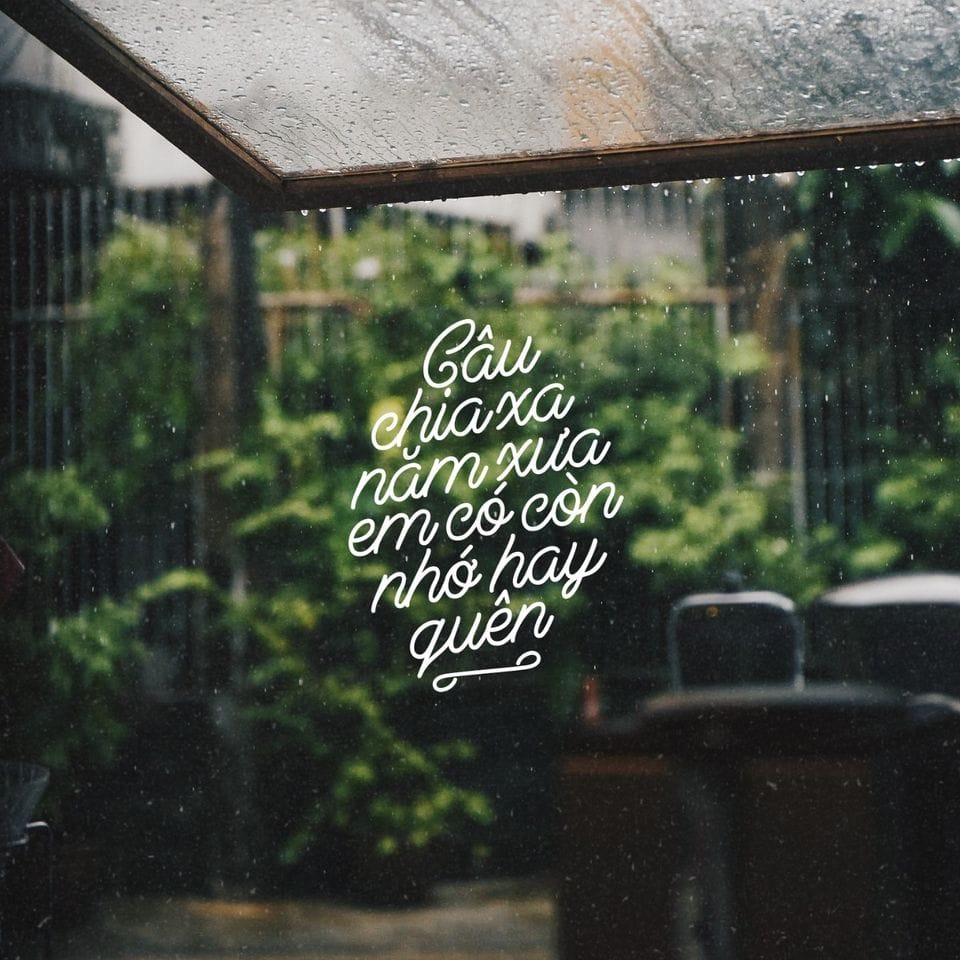 Câu
chia xa
năm xưa
em có còn
nhớ hay
quên